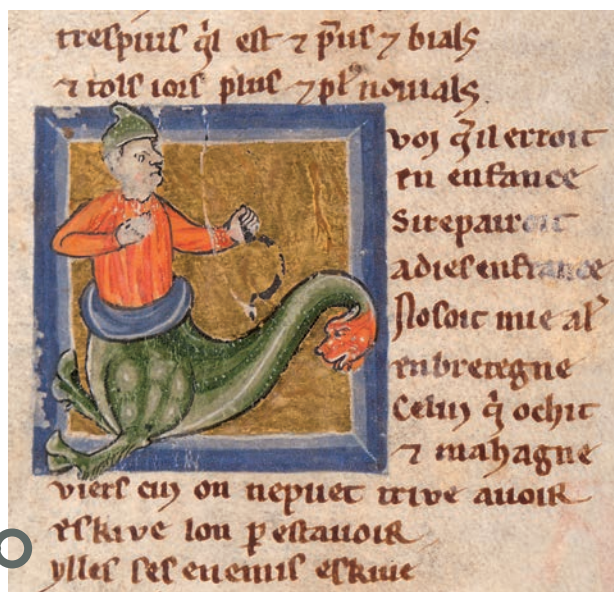 trespius q̃l est ⁊ p̃us ⁊ bials
⁊ tols iors plus ⁊ pl᷒ nouials
voj q̃ il erroit
en enfance
Si repairoit
adies enfrance
No soit mie al᷒
en bretegne
Celuj q̃ ochit
⁊ mahagne
viers cuj on nepuet trive auoir
eskive lon p estauoir
ylles ses enemis eskiue